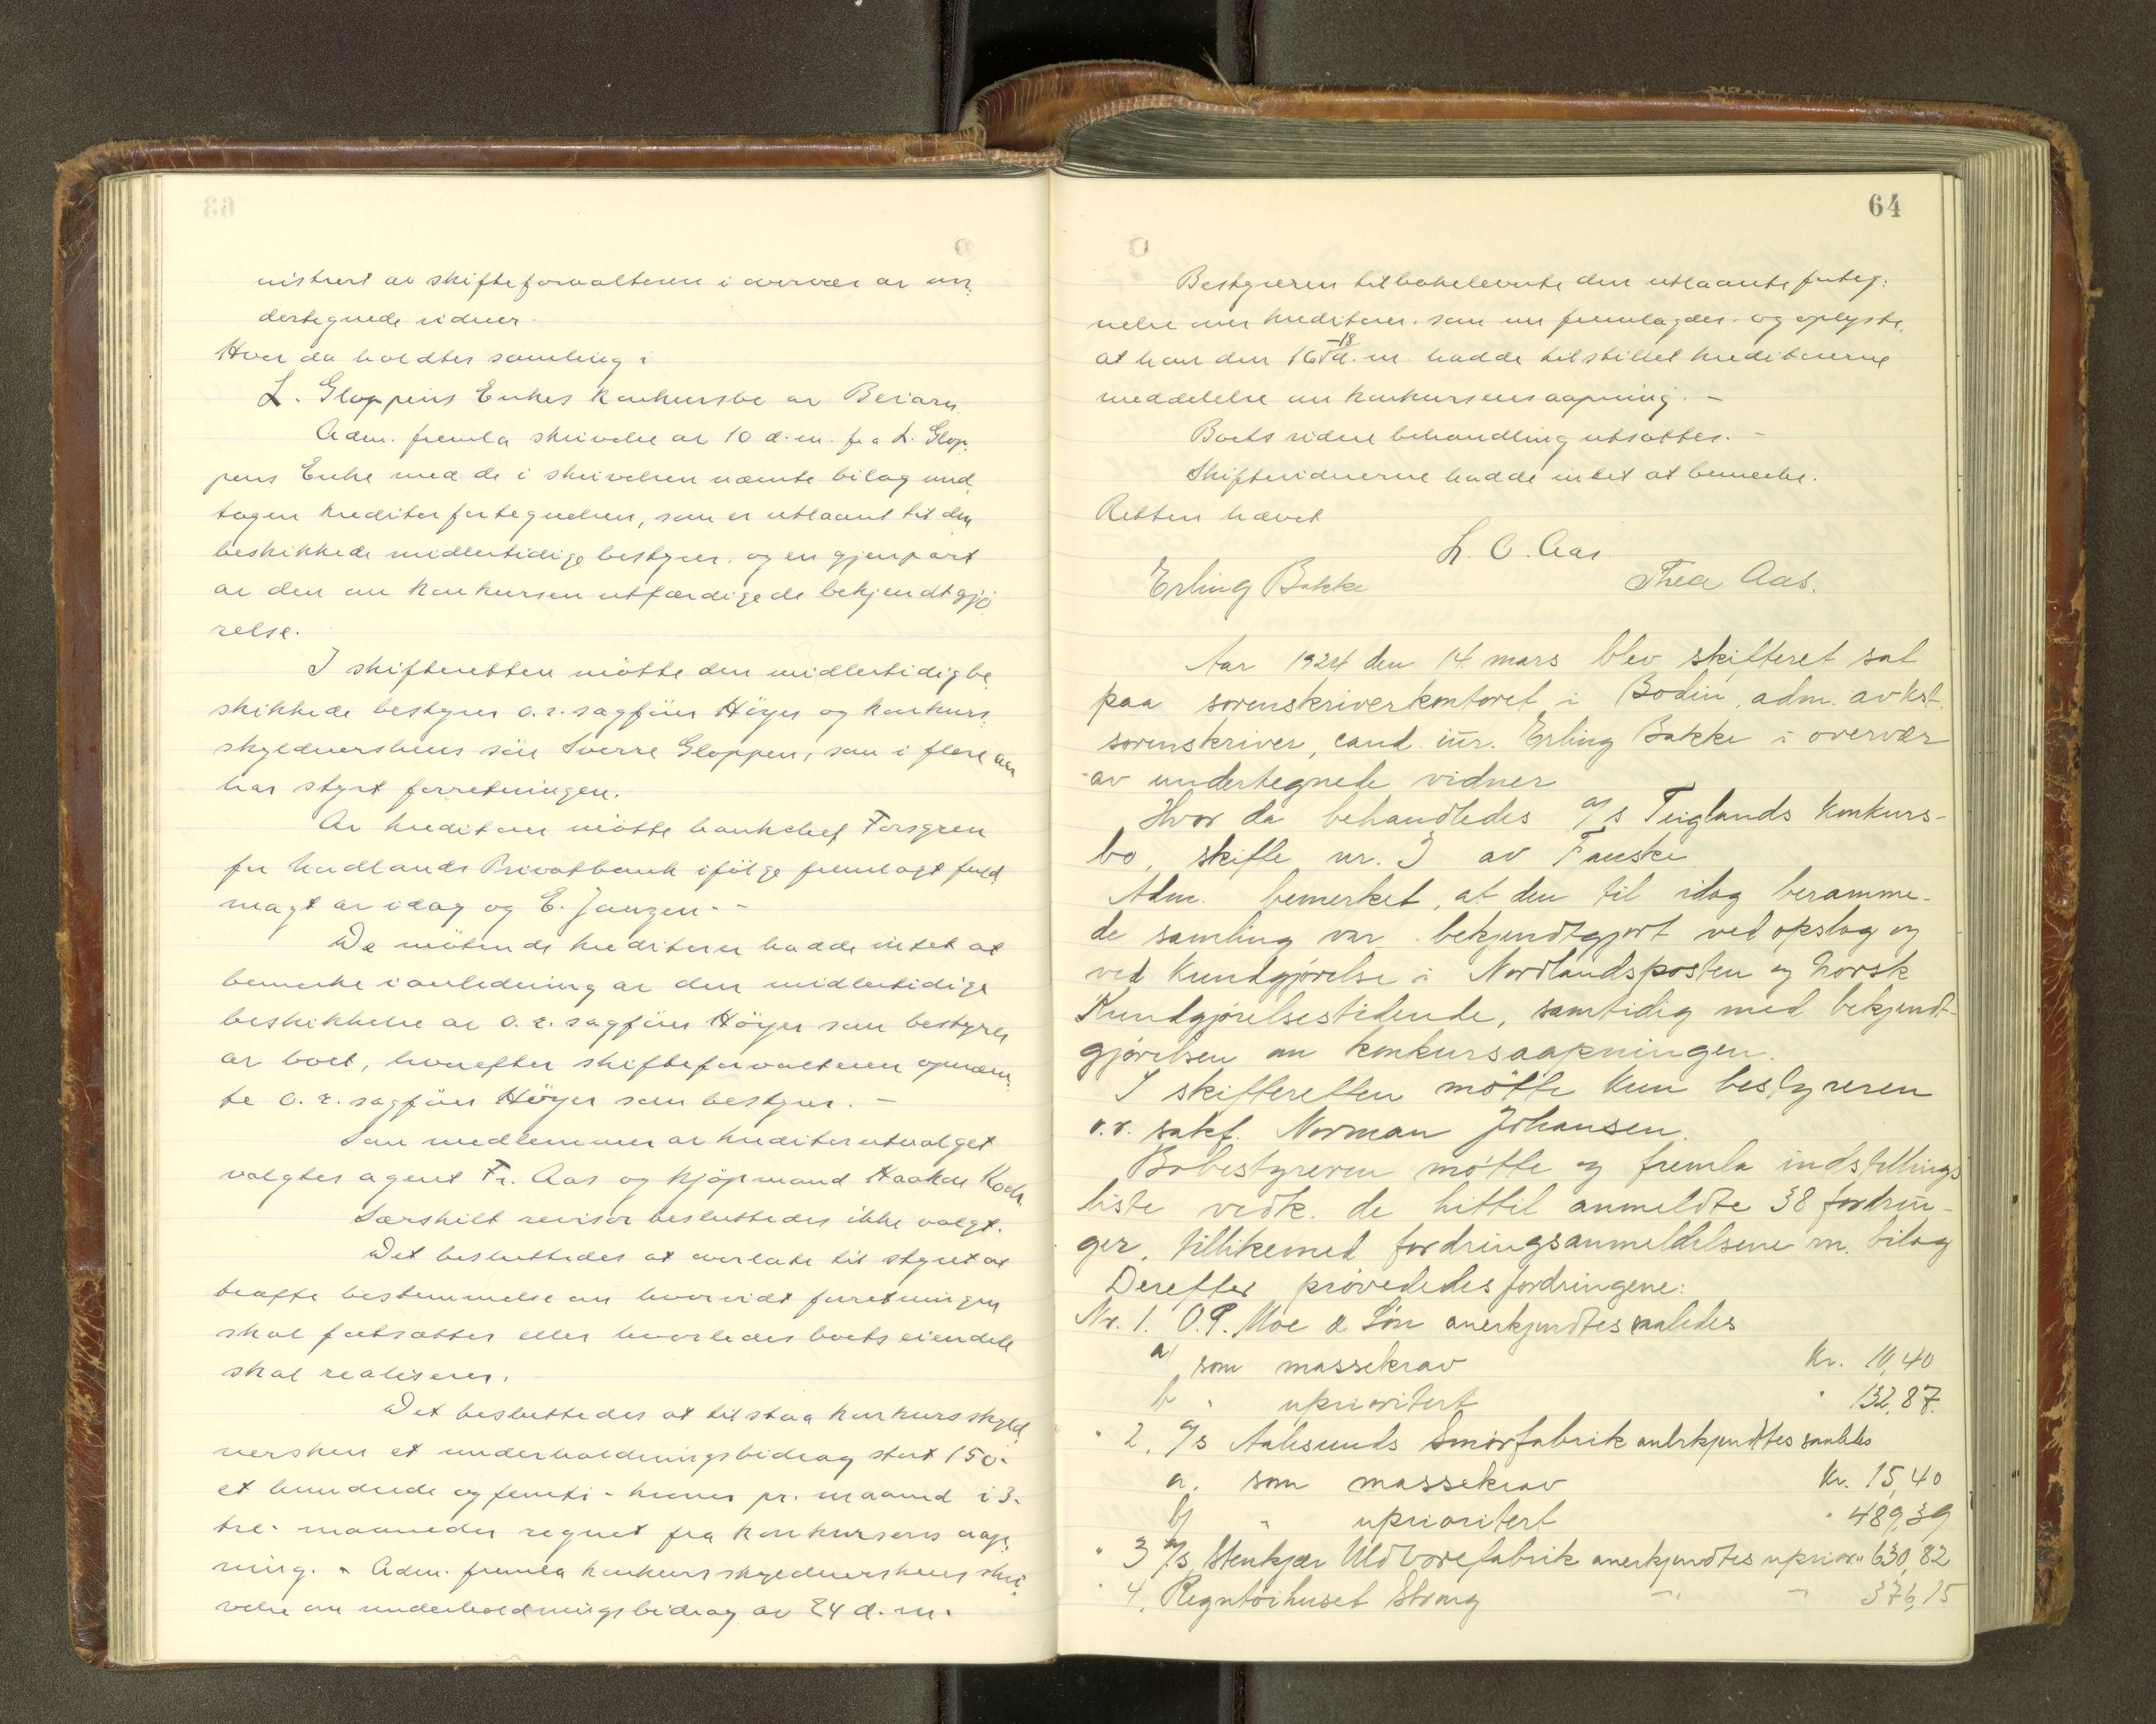 nistrert av skifteforvalteren i overvær av un-
dertegnede vidner.
Hvor da holdtes samling i
L. Gloppens Enkes konkursbo av Beiarn.
Adm. fremla skrivelse av 10 d.m. fra L. Glop-
pens Enke med de i skrivelsen nævnte bilag und-
tagen kreditorfortegnelsen, som er utlaant til den
beskikkede midlertidige bestyrer, og en gjenpart
av den om konkursen utfærdigede bekjendtgjø-
relse.
I skifteretten møtte den midlertidig be-
skikkede bestyrer o.r.sagfører Höyer og konkurs-
skyldnerskens søn Sverre Gloppen, som i flere aar
har styrt forretningen.
Av kreditorer møtte bankchef Forsgren
for Nordlands Privatbank ifølge fremlagt fuld-
magt av idag og E. Janzen. -
De møtende kreditorer hadde intet at
bemerke i anledning av den midlertidige
beskikkelse av o.r.sagfører Höyer som bestyrer
av boet, hvorefter skifteforvalteren opnævn-
te o.r.sagfører Höyer som bestyrer. -
Som medlemmer av kreditorutvalget
valgtes agent Fr. Aas og kjøpmand Haakon Koch
Særskilt revisor besluttedes ikke valgt.
Det besluttedes at overlate til styret at
træffe bestemmelse om hvorvidt forretningen
skal fortsættes eller hvorledes boets eiendele
skal realiseres.
Det besluttedes at tilstaa konkursskyld-
nersken et underholdningsbidrag stort 150-
et hundrede og femti - kroner pr. maaned i 3-
tre- maaneder regnet fra konkursens aap-
ning. - Adm. fremla konkursskyldnerskens skri-
velse om underholdningsbidrag av 24 d.m.
64
Bestyreren tilbakeleverte den utlaante forteg-
nelse over kreditorer, som nu fremlagdes og oplyste,
at han den 16-18 d.m. hadde tilstillet kreditorerne
meddelelse om konkursens aapning. -
Boets videre behandling utsattes. -
Skiftevidnerne hadde intet at bemerke.
Retten hævet
L. O. Aas.
Erling Bakke Thea Aas.
Aar 1924 den 14. mars blev skifteret sat
paa sorenskriverkontoret i Bodin, adm. av kst.
sorenskriver, cand. jur. Erling Bakke i overvær
av undertegnede vidner
Hvor da behandledes a/s Teiglands konkurs-
bo, skifte nr. 3 av Fauske
Adm. bemerket, at den til idag beramme-
de samling var bekjendtgjort ved opslag og
ved Kundgjørelse i Nordlandsposten og Norsk
Kundgjørelsestidende, samtidig med bekjendt-
gjørelsen om konkursaapningen.
I skifteretten møtte kun bestyreren
o.r. sakf. Norman Johansen.
Bobestyreren møtte og fremla indstillings
liste vedk. de hittil anmeldte 38 fordrin-
ger, tillikemed fordringsanmeldelsene m. bilag
Derefter prøvededes fordringene:
Nr. 1. O.P. Moe & Søn anerkjendtes saaledes
a) som massekrav Kr. 10,40
b " uprioritert " 132,87.
" 2. a/s Aalesunds Smørfabrik anerkjendtes saaledes
a. som massekrav Kr. 15,40
b) " uprioritert " 489,39
" 3 a/s Stenkjær Uldvarefabrik anerkjendtes uprior. " 630,82
" 4. Regntøihuset Strong -"- -"- 376,15